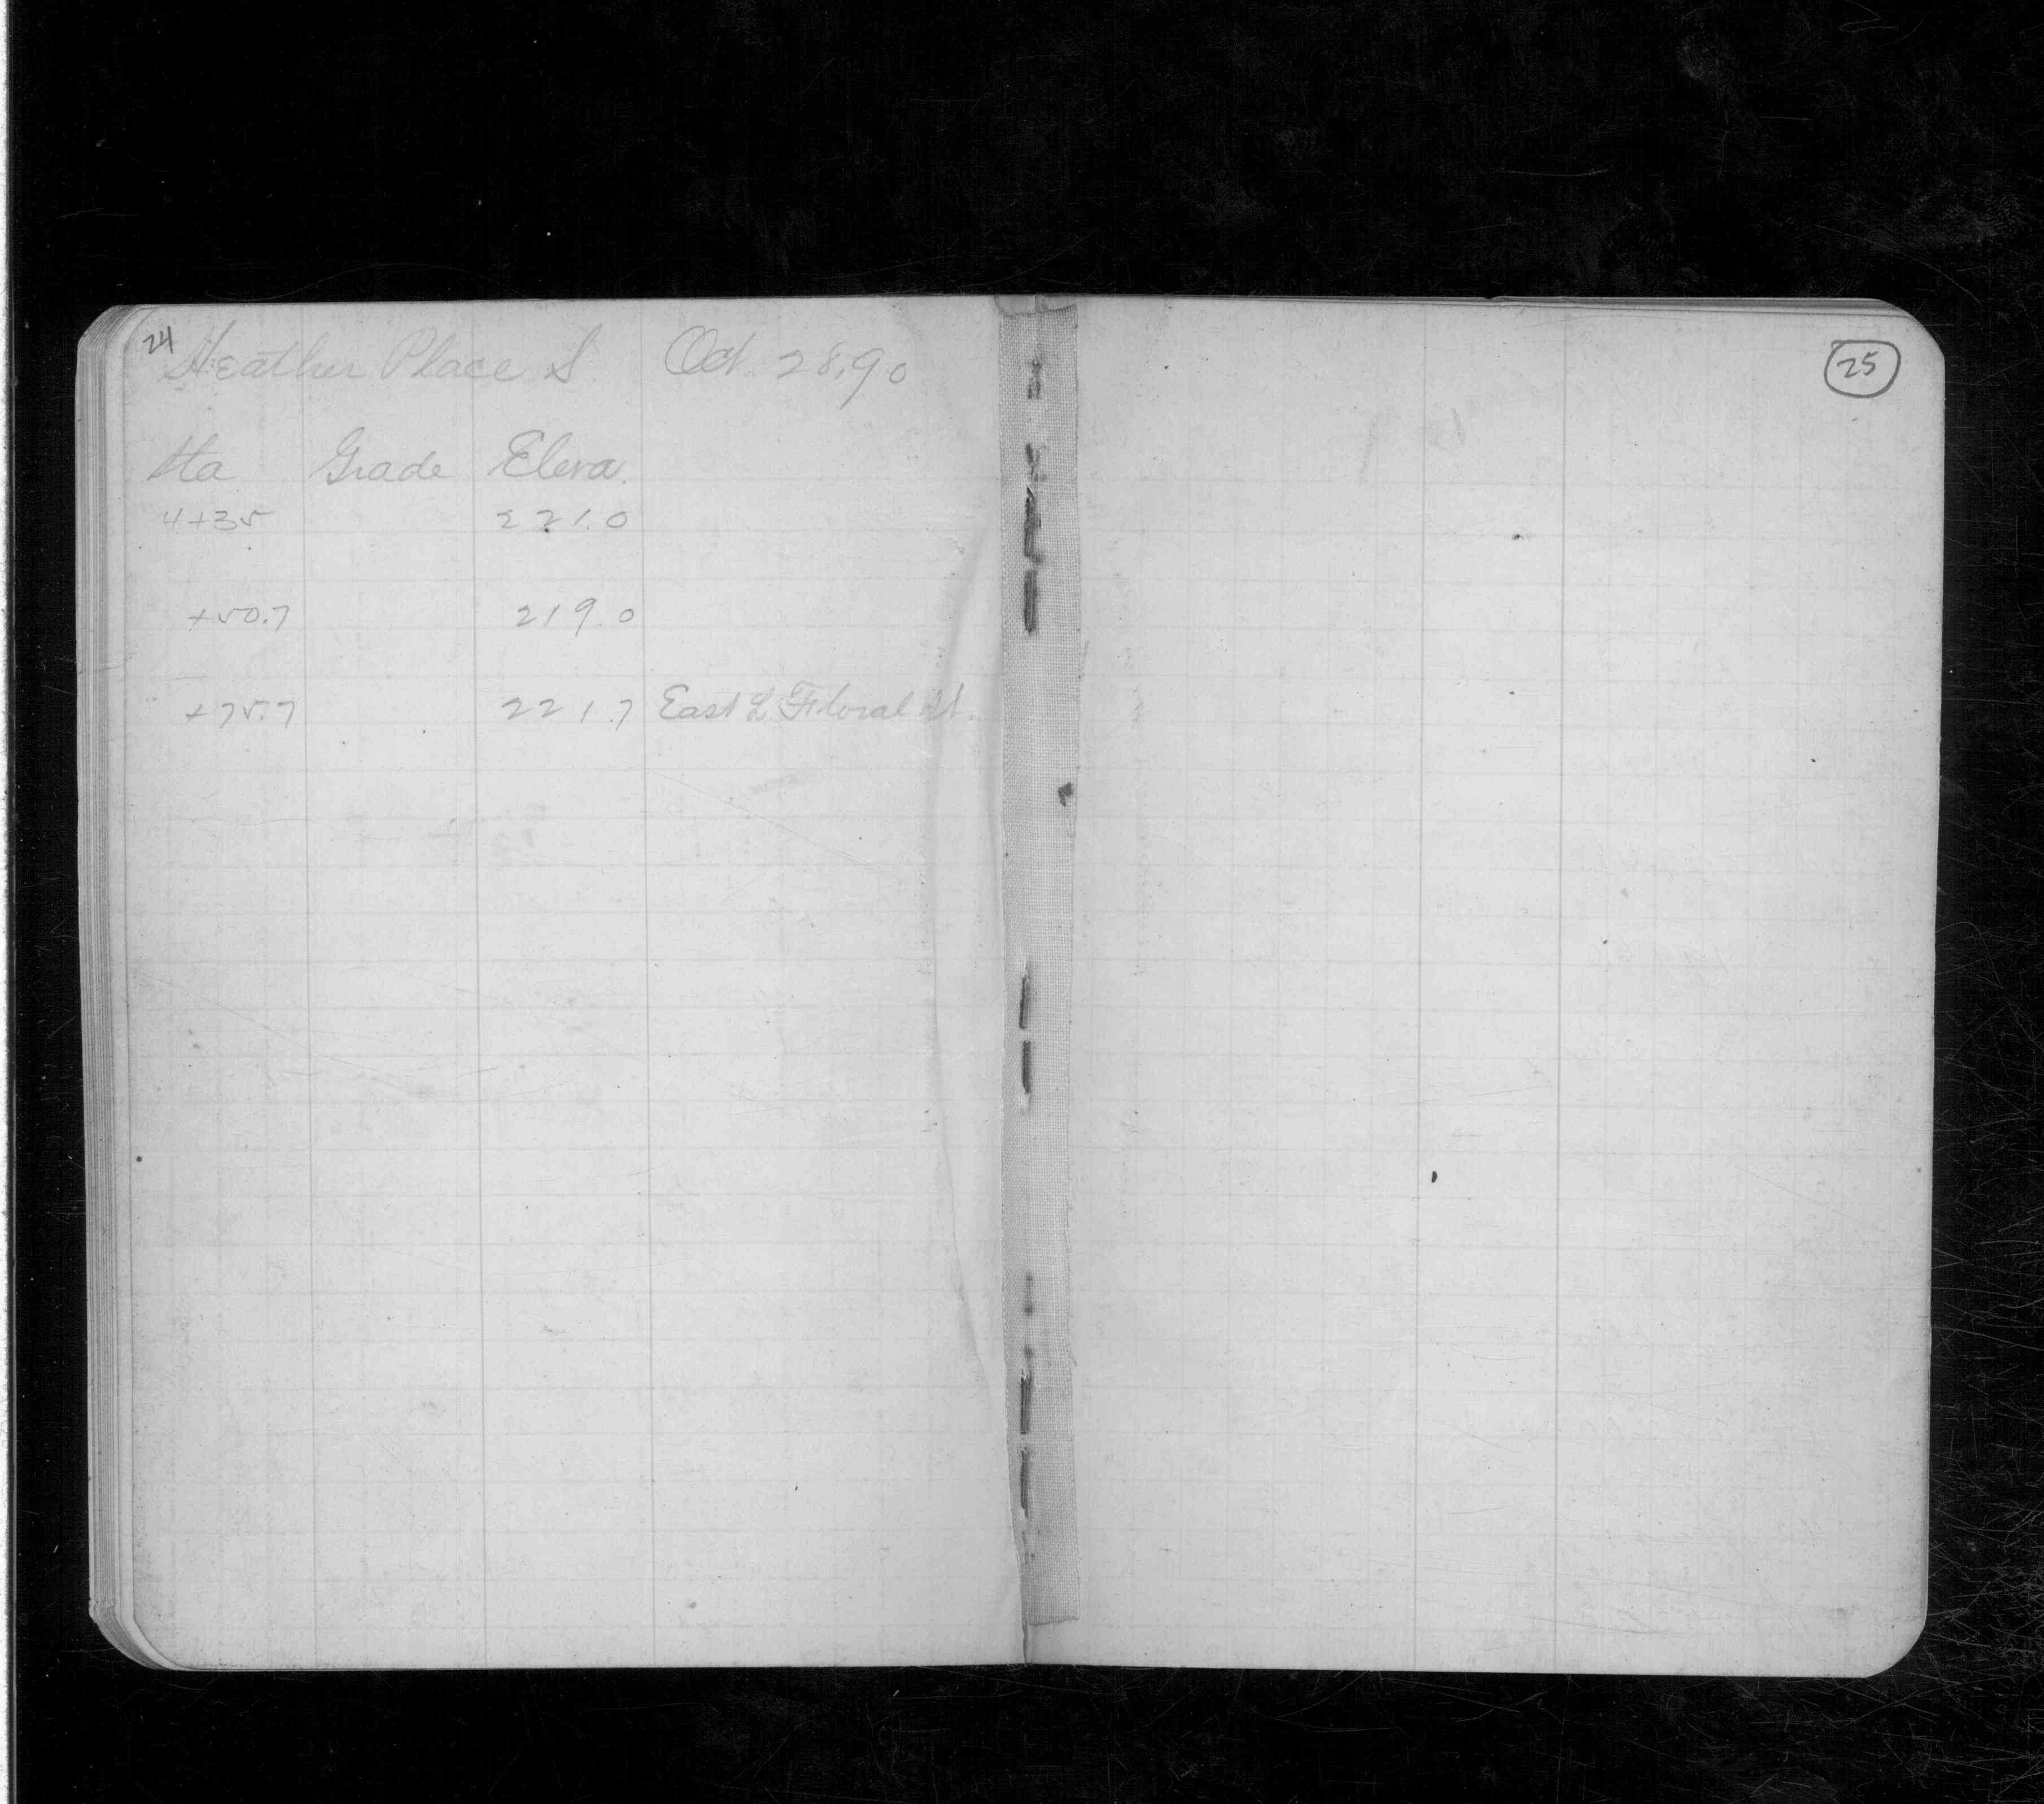 24
Heather Place S Oct. 28, 90
Sta Grade Eleva.
4+35 221.0
+50.7 219.0
+75.7 221.7 East L Floral St.
25